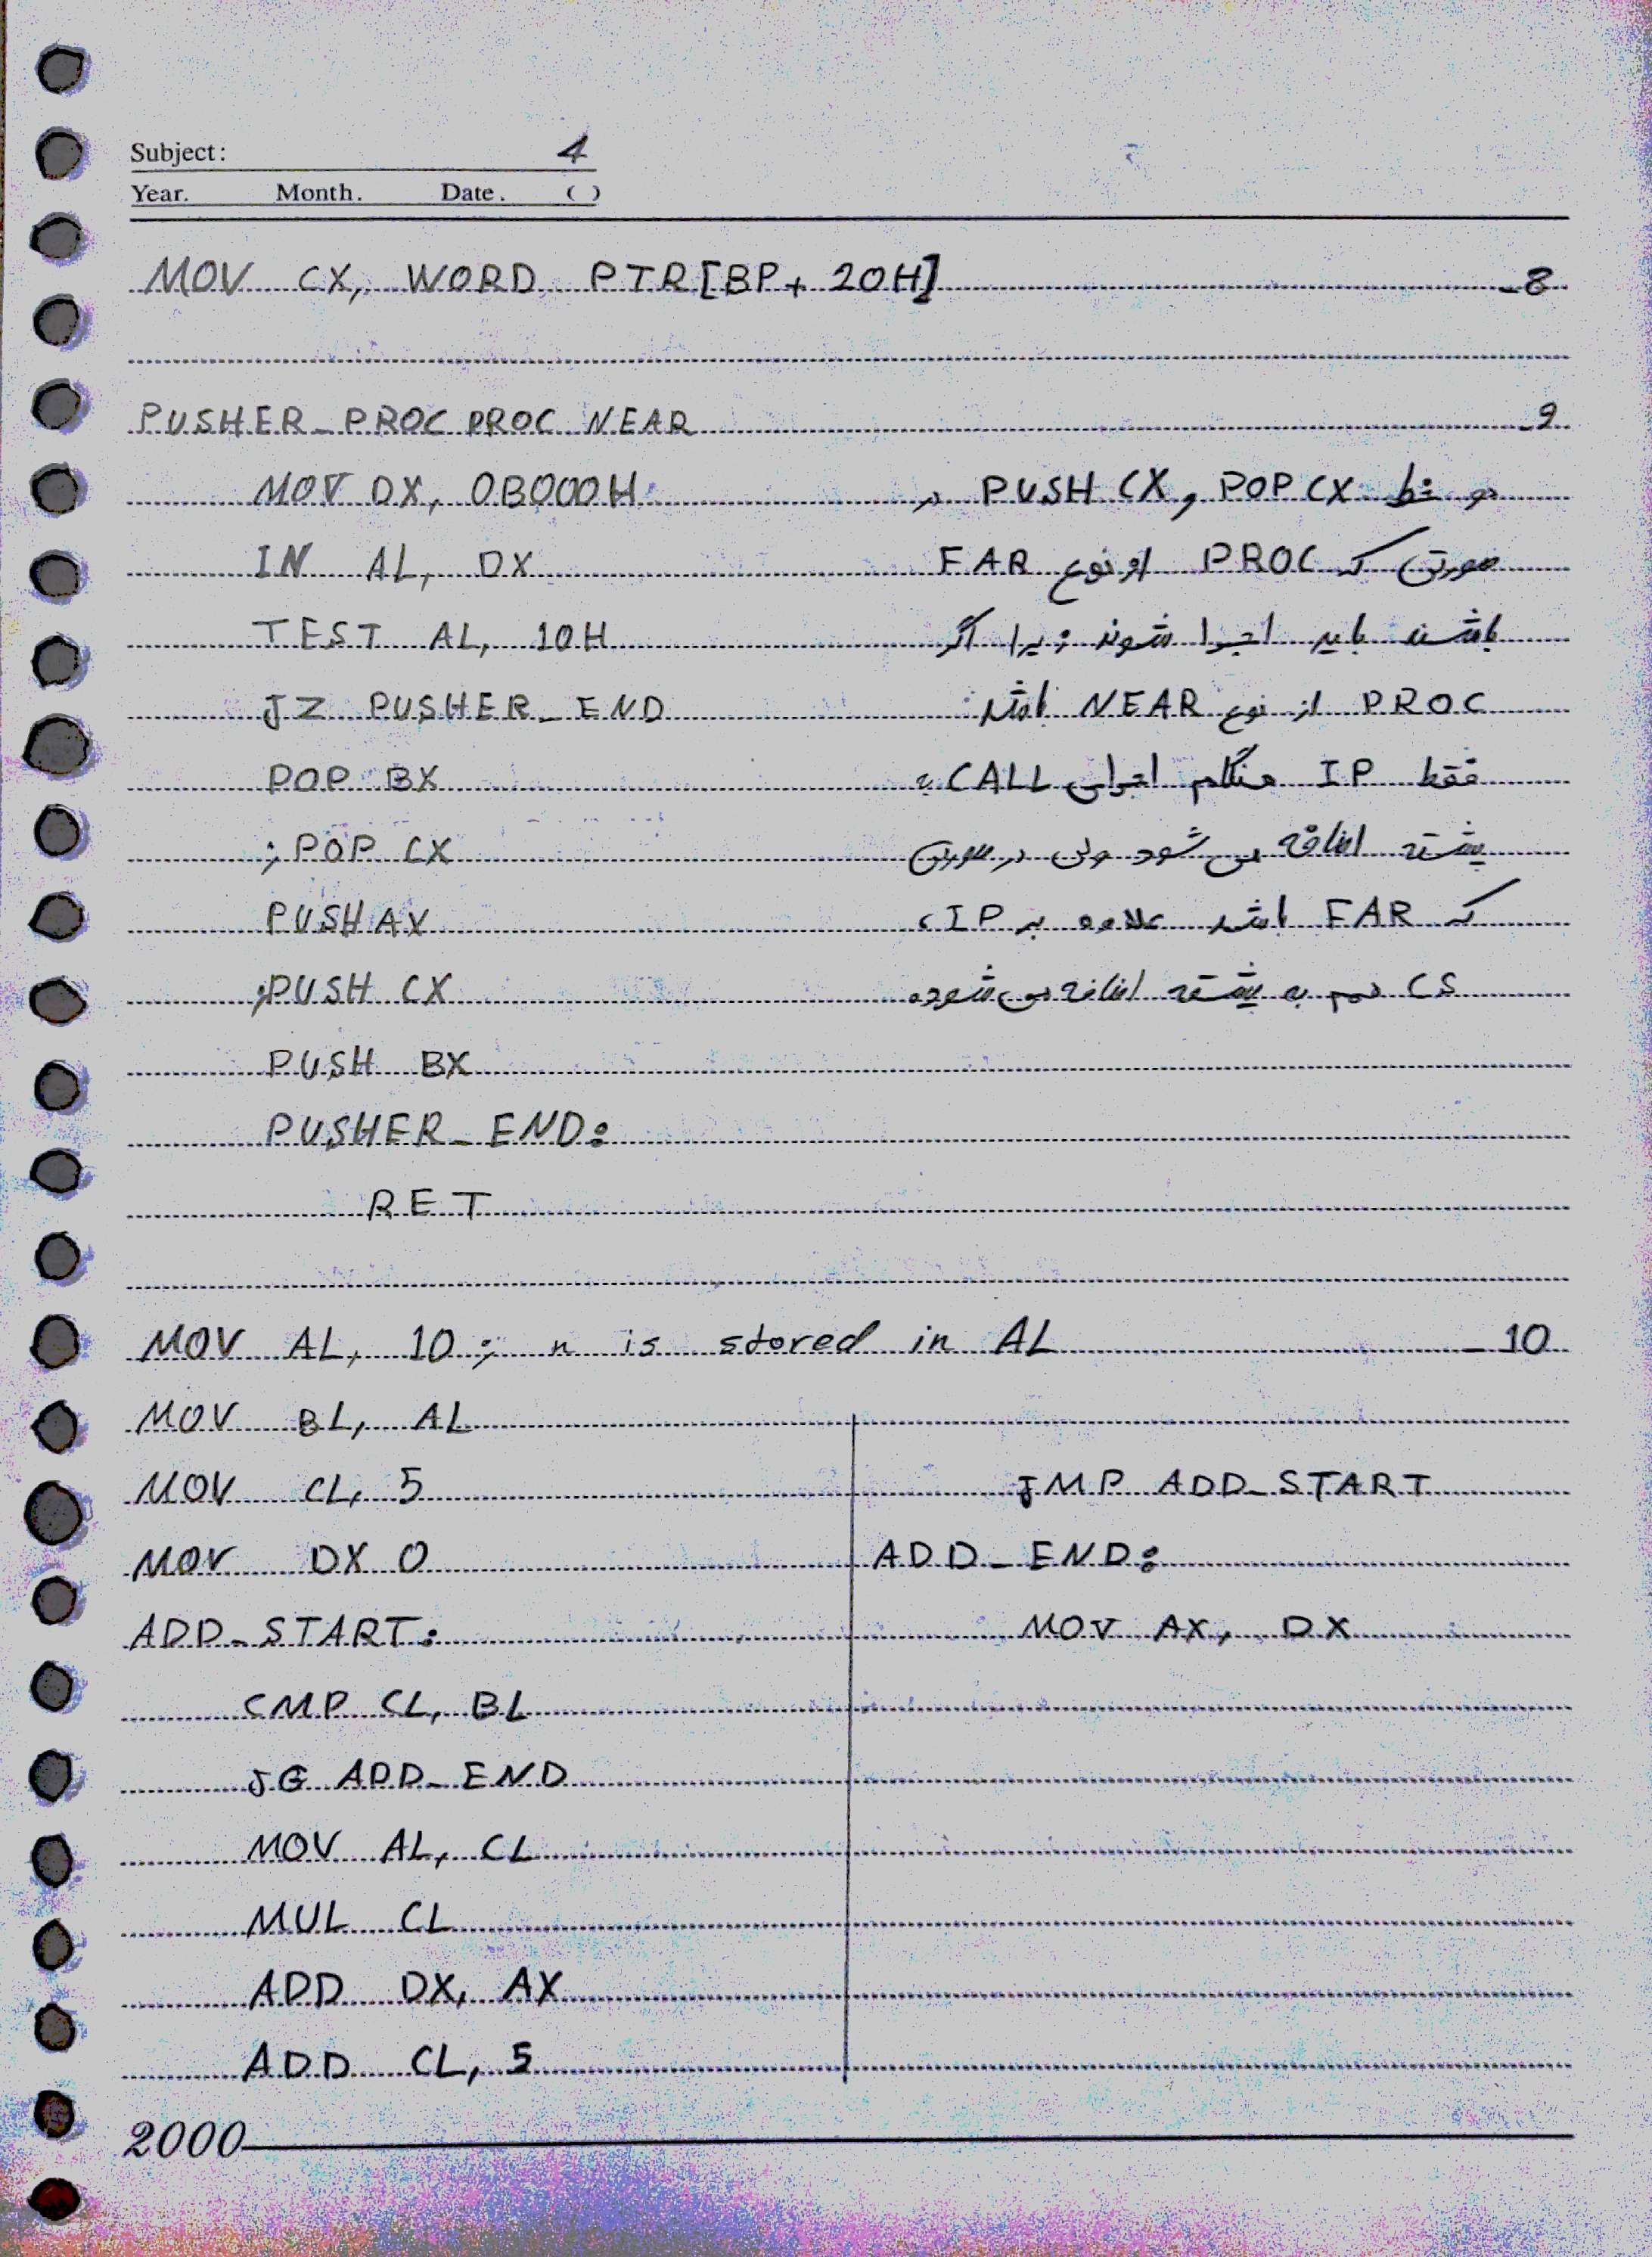 Subject: 4
Year. Month. Date. ( )
MOV CX, WORD PTR[BP+ 20H] _8
PUSHER_PROC PROC NEAR _9
MOV DX, 0B000H
IN AL, DX
TEST AL, 10H
JZ PUSHER_END
POP BX
; POP CX
PUSH AX
;PUSH CX
PUSH BX
PUSHER_END:
RET
دو خط PUSH CX و POP CX در
صورتی که PROC از نوع FAR
باشند باید اجرا شوند زیرا اگر
PROC از نوع NEAR باشد
فقط IP هنگام اجرای CALL به
پشته اضافه می شود ولی در صورتی
که FAR باشد علاوه بر IP،
CS هم به پشته اضافه می شود.
MOV AL, 10 ; n is stored in AL _10
MOV BL, AL
MOV CL, 5
MOV DX 0
ADD_START:
CMP CL, BL
JG ADD_END
MOV AL, CL
MUL CL
ADD DX, AX
ADD CL, 5
JMP ADD_START
ADD_END:
MOV AX, DX
2000